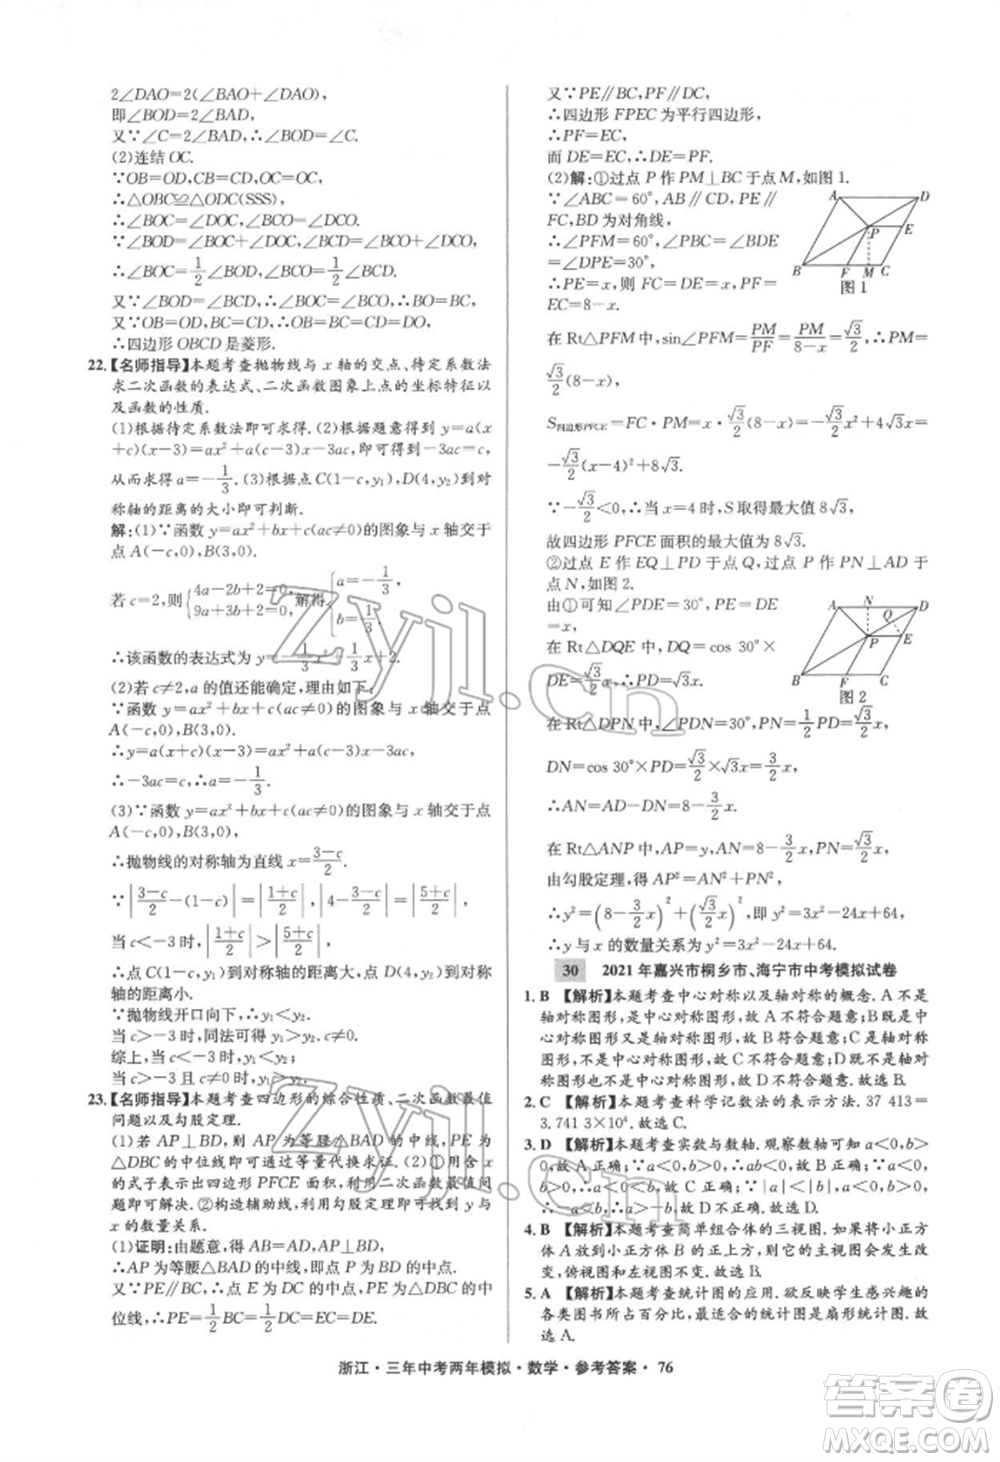 2∠DAO=2(∠BAO+∠DAO),
即∠BOD=2∠BAD.
又∵∠C=2∠BAD,∴∠BOD=∠C.
(2)连结OC.
∵OB=OD,CB=CD,OC=OC,
∴△OBC≌△ODC(SSS),
∴∠BOC=∠DOC,∠BCO=∠DCO.
∵∠BOD=∠BOC+∠DOC,∠BCD=∠BCO+∠DCO,
∴∠BOC=1/2∠BOD,∠BCO=1/2∠BCD.
又∵∠BOD=∠BCD,∴∠BOC=∠BCO,∴BO=BC.
又∵OB=OD,BC=CD,∴OB=BC=CD=DO,
∴四边形OBCD是菱形.
22.【名师指导】本题考查抛物线与x轴的交点、待定系数法
求二次函数的表达式、二次函数图象上点的坐标特征以
及函数的性质.
(1)根据待定系数法即可求得.(2)根据题意得到y=a(x
+c)(x-3)=ax²+bx+c(ac≠0),即可得到-3ac=c,
从而求得a=-1/3.(3)根据点C(1-c,y₁),D(4,y₂)到对
称轴的距离的大小即可判断.
解:(1)∵函数y=ax²+bx+c(ac≠0)的图象与x轴交于
点A(-c,0),B(3,0).
若c=2,则{4a-2b+2=0, 9a+3b+2=0,解得{a=-1/3, b=1/3,
∴该函数的表达式为y=-1/3x²+1/3x+2.
(2)若c≠2,a的值还能确定,理由如下:
∵函数y=ax²+bx+c(ac≠0)的图象与x轴交于点
A(-c,0),B(3,0).
∴y=a(x+c)(x-3)=ax²+bx+c(ac≠0),
∴-3ac=c,∴a=-1/3.
(3)∵函数y=ax²+bx+c(ac≠0)的图象与x轴交于点
A(-c,0),B(3,0),
∴抛物线的对称轴为直线x=(3-c)/2.
∵|(3-c)/2-(1-c)|=|(1+c)/2|,|4-(3-c)/2|=|(5+c)/2|,
当c<-3时,|(1+c)/2|>|(5+c)/2|,
∵抛物线开口方向向下,∴y₁<y₂.
当c>-3时,同法可得y₁>y₂.c≠0.
综上,当c<-3时,y₁<y₂;
当c>-3时,y₁>y₂,c≠0.
23.【名师指导】本题考查四边形的综合性质、二次函数最值
问题以及勾股定理.
(1)若AP⊥BD,则AP为等腰△BAD的中线,PE为
△DBC的中位线即可通过等量代换求证.(2)①用含x
的式子表示出四边形PFCE的面积,利用二次函数最值问
题即可解决.②构造辅助线,利用勾股定理可求得y与
x的数量关系.
(1)证明:由题意,得AB=AD,AP⊥BD,
∴AP为等腰△BAD的中线,即点P为BD的中点.
又∵PE∥BC,∴点E为DC的中点,∴PE为△DBC的中
位线,∴PE=1/2BC=1/2DC=DE.
又∵PE∥BC,PF∥DC,
∴四边形FPEC为平行四边形,
∴PF=EC.
而DE=EC,∴DE=PF.
(2)解:①过点P作PM⊥BC于点M,如图1.
∵∠ABC=60°,AB∥CD,PE∥
FC,BD为对角线,
∴∠PFM=60°,∠PBC=∠BDE
=∠DPE=30°,
∴PE=x,则FC=DE=x,PF=
EC=8-x.
A D P E B F M C
图1
在Rt△PFM中,sin∠PFM=PM/PF=PM/(8-x)=√3/2,∴PM=
√3/2(8-x),
S四边形PFCE=FC·PM=x·√3/2(8-x)=-√3/2x²+4√3x=
-√3/2(x-4)²+8√3.
∵-√3/2<0,∴当x=4时,S取得最大值8√3.
故四边形PFCE面积的最大值为8√3.
②过点E作EQ⊥PD于点Q,过点P作PN⊥AD于
点N,如图2.
由①可知∠PDE=30°,PE=DE
=x.
在Rt△DQE中,DQ=cos 30°×
DE=√3/2x,∴PD=√3x.
A N D Q P E B F C
图2
在Rt△DPN中,∠PDN=30°,PN=1/2PD=√3/2x,
DN=cos 30°×PD=√3/2×√3x=3/2x.
∴AN=AD-DN=8-3/2x.
在Rt△ANP中,AP=y,AN=8-3/2x,PN=√3/2x,
由勾股定理,得AP²=AN²+PN²,
∴y²=(8-3/2x)²+(√3/2x)²,即y²=3x²-24x+64,
∴y与x的数量关系为y²=3x²-24x+64.
30 2021年嘉兴市桐乡市、海宁市中考模拟试卷
1. B 【解析】本题考查中心对称以及轴对称的概念. A不是
轴对称图形,是中心对称图形,故A不符合题意;B既是中
心对称图形又是轴对称图形,故B符合题意;C是轴对称
图形,不是中心对称图形,故C不符合题意;D不是轴对
称图形,是中心对称图形,故D不符合题意. 故选B.
2. C 【解析】本题考查科学记数法的表示方法. 37 413=
3.741 3×10⁴. 故选C.
3. D 【解析】本题考查实数与数轴. 观察数轴可知a<0,b>
0,故A、C错误;∵a<0,b>0,∵|a|<|b|,∴a+b>0,故B
错误;∵a<0,b>0,∴a-b<0,故D正确. 故选D.
4. B 【解析】本题考查简单组合体的三视图. 如果将小正方
体A放到小正方体B的正上方,则它的主视图会发生改
变,俯视图和左视图不变. 故选B.
5. A 【解析】本题考查统计图的应用. 欲反映学生感兴趣的
各类图书所占百分比,最适合的统计图是扇形统计图. 故
选A.
浙江·三年中考两年模拟·数学·参考答案·76
Zyjl.Cn
Zyjl.Cn
答案圈
MXQE.COM